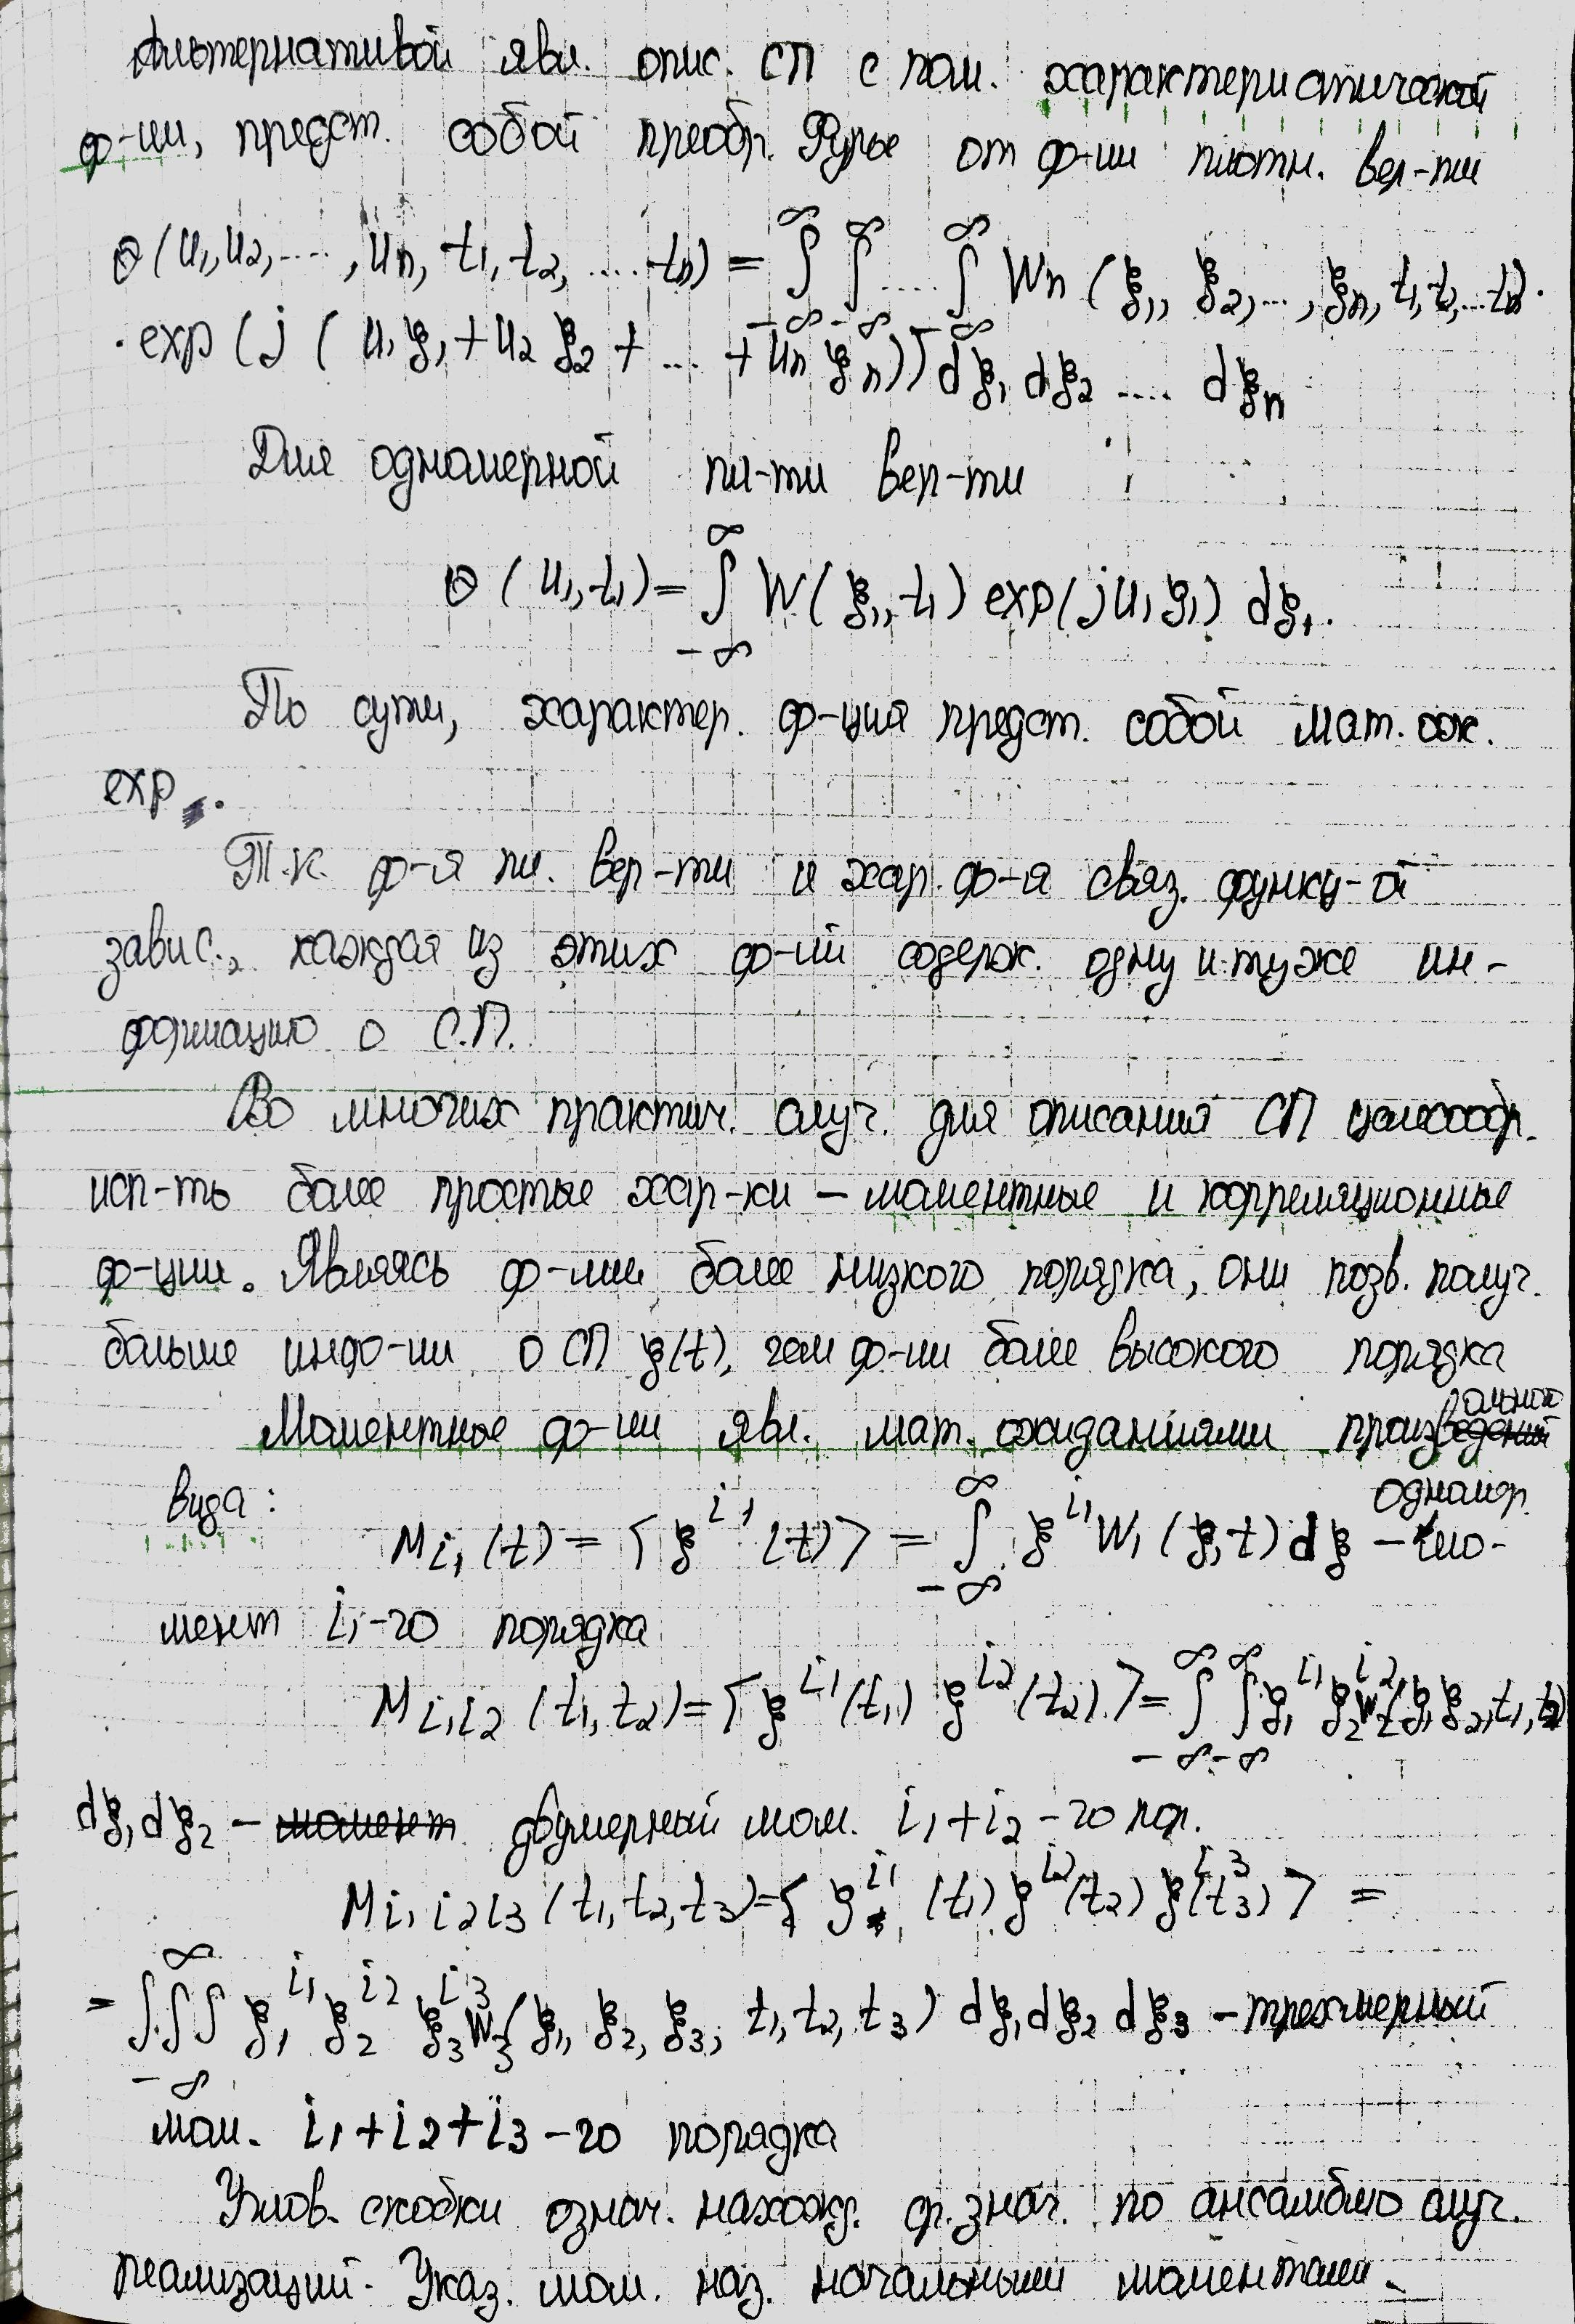 Альтернативой явл. опис. СП с пом. характеристической
ф-ии, предст. собой преобр. Фурье от ф-ии плотн. вер-ти
Θ(u₁,u₂,...,uₙ, t₁, t₂, ... tₙ) = ∫_{-∞}^{∞} ∫_{-∞}^{∞} .... ∫_{-∞}^{∞} Wₙ (ξ₁, ξ₂,..., ξₙ, t₁, t₂,...tₙ)·
· exp (j ( u₁ ξ₁ + u₂ ξ₂ + ... + uₙ ξₙ)) dξ₁ dξ₂ .... dξₙ
Для одномерной пл-ти вер-ти
Θ (u₁, t₁) = ∫_{-∞}^{∞} W(ξ₁, t₁) exp(j u₁ ξ₁) dξ₁.
По сути, характер. ф-ция предст. собой мат. ож.
exp.
Т.к. ф-я пл. вер-ти и хар. ф-я связ. функц-ой
завис., каждая из этих ф-ий содерж. одну и ту же ин-
формацию о С.П.
Во многих практич. случ. для описания СП целесообр.
исп-ть более простые хар-ки – моментные и корреляционные
ф-ции. Являясь ф-ми более низкого порядка, они позв. получ.
больше инфо-ии о СП ξ(t), чем ф-ии более высокого порядка
Моментные ф-ии явл. мат. ожиданиями произведений
вида:
M_{i₁}(t) = <ξ^{i₁}(t)> = ∫_{-∞}^{∞} ξ^{i₁} W₁ (ξ, t) dξ – одномер. мо-
мент i₁-го порядка
M_{i₁i₂} (t₁, t₂) = <ξ^{i₁}(t₁) ξ^{i₂}(t₂)> = ∫_{-∞}^{∞} ∫_{-∞}^{∞} ξ₁^{i₁} ξ₂^{i₂} W₂(ξ₁ ξ₂, t₁, t₂)
dξ₁ dξ₂ – момент двумерный мом. i₁+i₂-го пор.
M_{i₁i₂i₃} (t₁, t₂, t₃) = <ξ^{i₁}(t₁) ξ^{i₂}(t₂) ξ^{i₃}(t₃)> =
= ∫∫∫_{-∞}^{∞} ξ₁^{i₁} ξ₂^{i₂} ξ₃^{i₃} W₃(ξ₁, ξ₂, ξ₃, t₁, t₂, t₃) dξ₁ dξ₂ dξ₃ – трехмерный
мом. i₁+i₂+i₃-го порядка
Углов. скобки означ. нахожд. ср. знач. по ансамблю случ.
реализаций. Указ. мом. наз. начальными моментами.